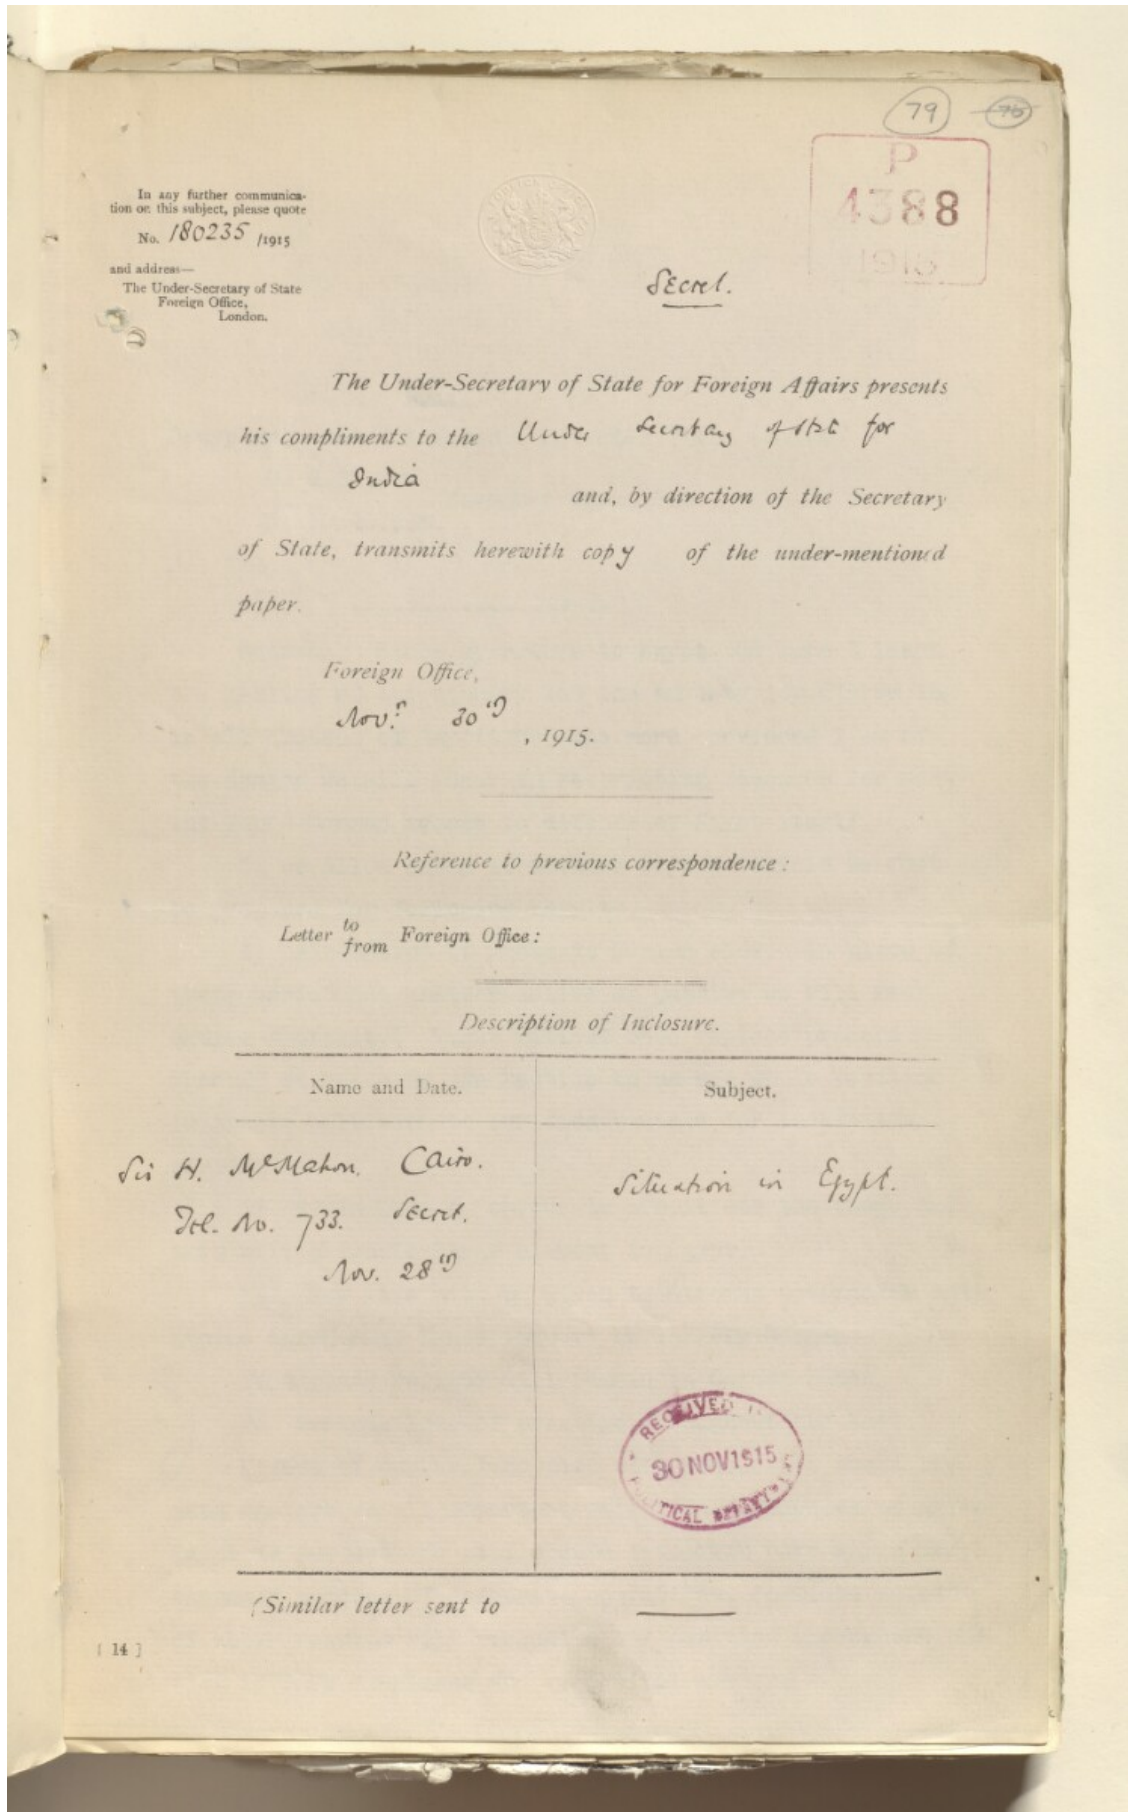 79 76
P
4388
1915
In any further communica-
tion on this subject, please quote
No. 180235 /1915
and address—
The Under-Secretary of State
Foreign Office,
London.
Secret.
The Under-Secretary of State for Foreign Affairs presents
his compliments to the Under Secretary of State for
India
and, by direction of the Secretary
of State, transmits herewith copy of the under-mentioned
paper.
Foreign Office,
Nov.r 30th
, 1915.
Reference to previous correspondence :
Letter to from Foreign Office :
Description of Inclosure.
Name and Date. Subject.
Sir H. McMahon. Cairo. Situation in Egypt.
Tel. No. 733. Secret.
Nov. 28th
RECEIVED
30 NOV 1915
POLITICAL DEPARTMENT
(Similar letter sent to
[ 14 ]